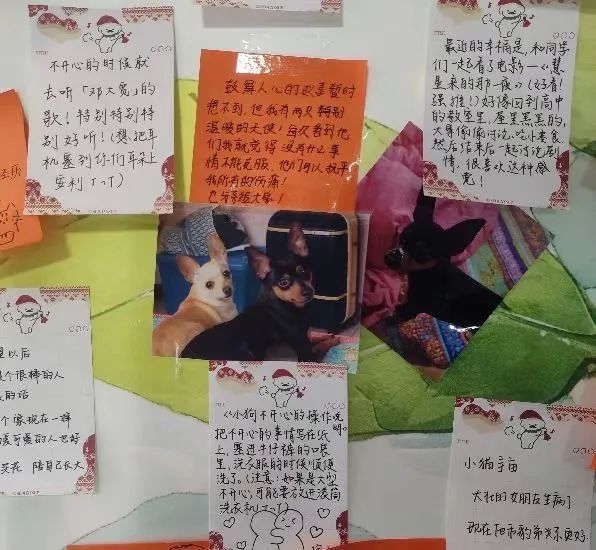 不开心的时候就
去听「邓大宽」的
歌！特别特别特
别好听！（想把耳
机塞到你们耳朵上
安利TヘT）
鼓舞人心的故事暂时
想不到，但我有两只特别
温暖的天使！每次看到他
们我就觉得没有什么事
情不能克服，他们可以抚平
我所有的伤痛！
也分享给大家！
最近的幸福是，和同学
们一起看了电影《彗
星来的那一夜》（好看！
强推！）好像回到高中
的教室里，屋里黑黑的，
大家偷偷讨论、吃小零食，
然后结束后一起讨论剧
情，很喜欢这种
《小狗不开心的操作说明》
把不开心的事情写在纸
上，塞进牛仔裤的口袋
里，洗衣服的时候顺便
洗了。（注意：如果是大型
不开心，可能要放进滚筒
洗衣机TヘT）
以后
个很棒的人
的话
个像现在一样
可爱的人也好
买花 陪自己长大
小猫
大壮的女朋友生病了
现在